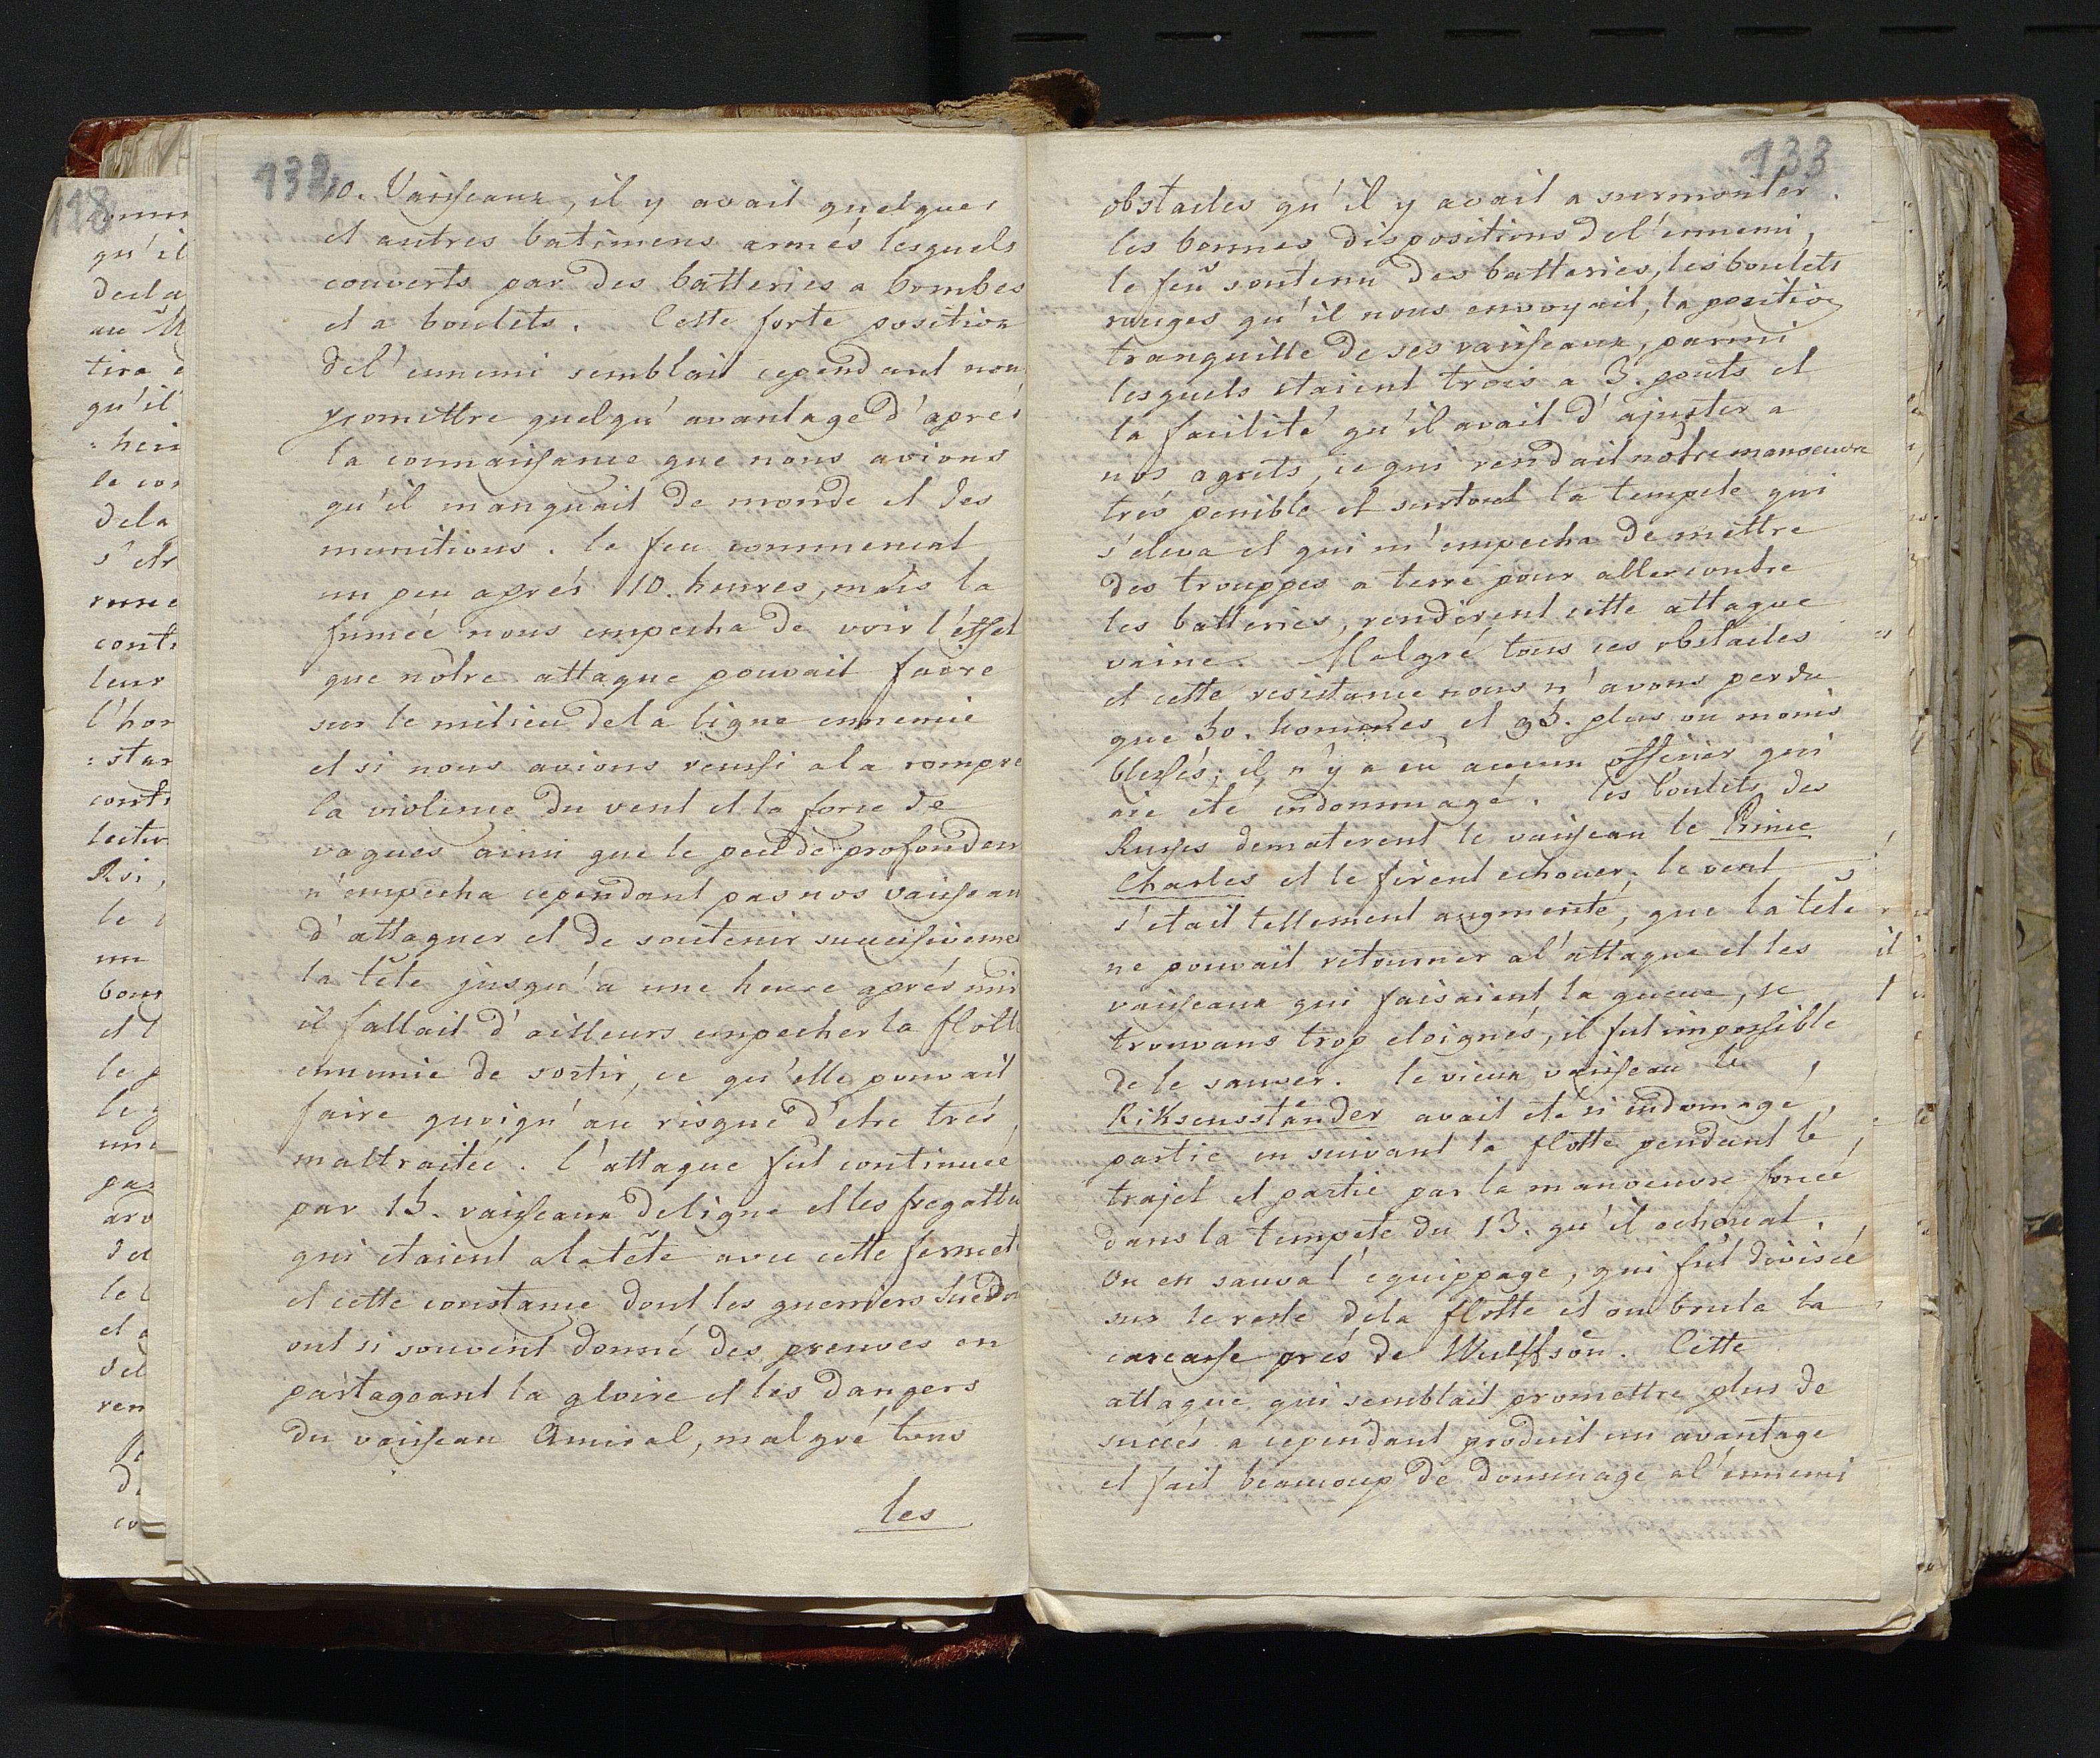 118
132
10. Vaiſseaux, il y avait quelques
et autres batimens armés lesquels
couverts par des batteries a bombes
et a boulets. Cette forte position
del'ennemi semblait cependant nous
promettre quelqu'avantage d'aprés
la connaiſsance que nous avions
qu'il manquait de monde et des
munitions. le feu commencat
un peu aprés 10. heures, mais la
fumée nous empecha de voir l'effet
que nôtre attaque pouvait faire
sur le milieu dela ligne ennemie
et si nous avions reuſsi ala rompre
la violence du vent et la force de
vagues ainsi que le peu de profondeu
n'empecha cependant pas nos vaiſseau
d'attaquer et de soutenir succeſsiveme
la tête jusqu'a une heure aprés mid
il fallait d'ailleurs empecher la flott
ennemie de sortir, ce qu'elle pouvait
faire quoiqu'au risque d'etre trés
maltraitée. l'attaque fut continuee
par 15. vaiſseaux deligne et les fregatte
qui etaient alatête avec cette fermet
et cette constance dont les guerriers Suedo
ont si souvent donné des preuves en
partageant la gloire et les dangers
du vaiſseau Amiral, malgré tous
les
133
obstacles qu'il y avait a surmonter.
les bonnes dispositions del'ennemi,
le feu soutenu des batteries, les boulets
rouges qu'il nous envoyait, la position
tranquille de ses vaiſseaux, parmi
lesquels etaient trois a 3. ponts et
la facilité qu'il avait d'ajuster a
nos agrets, ce qui rendait nôtre manoeuvre
trés penible et surtout la tempete qui
s'eleva et qui m'empecha de mettre
des trouppes a terre pour aller contre
les batteries, rendirent cette attaque
vaine. Malgré tous ces obstacles
et cette resistance nous n'avons perdu
que 30. hommes et 95. plus ou moins
bleſsés; il n'y a eu aucun officier qui
aie eté endommagé. les boulets des
Ruſses dematerent le vaiſseau le Prince
Charles et le firent echouer. le vent
s'etait tellement augmenté, que la tête
ne pouvait retourner al'attaque et les
vaiſseaux qui faisaient la queue, se
trouvans trop eloignés, il fut impoſsible
de le sauver. le vieux vaiſseau le
Riksensständer avait eté si endomagé,
partie en suivant la flotte pendant le
trajet et partie par la manoeuvre forcée
dans la tempete du 13. qu'il echouat.
On en sauva l'equippage, qui fut divisée
sur le reste dela flotte et on brula la
carcaſse prés de Wulffsön. Cette
attaque qui semblait promettre plus de
succés a cependant produit un avantage
et fait beaucoup de dommage al'ennemi